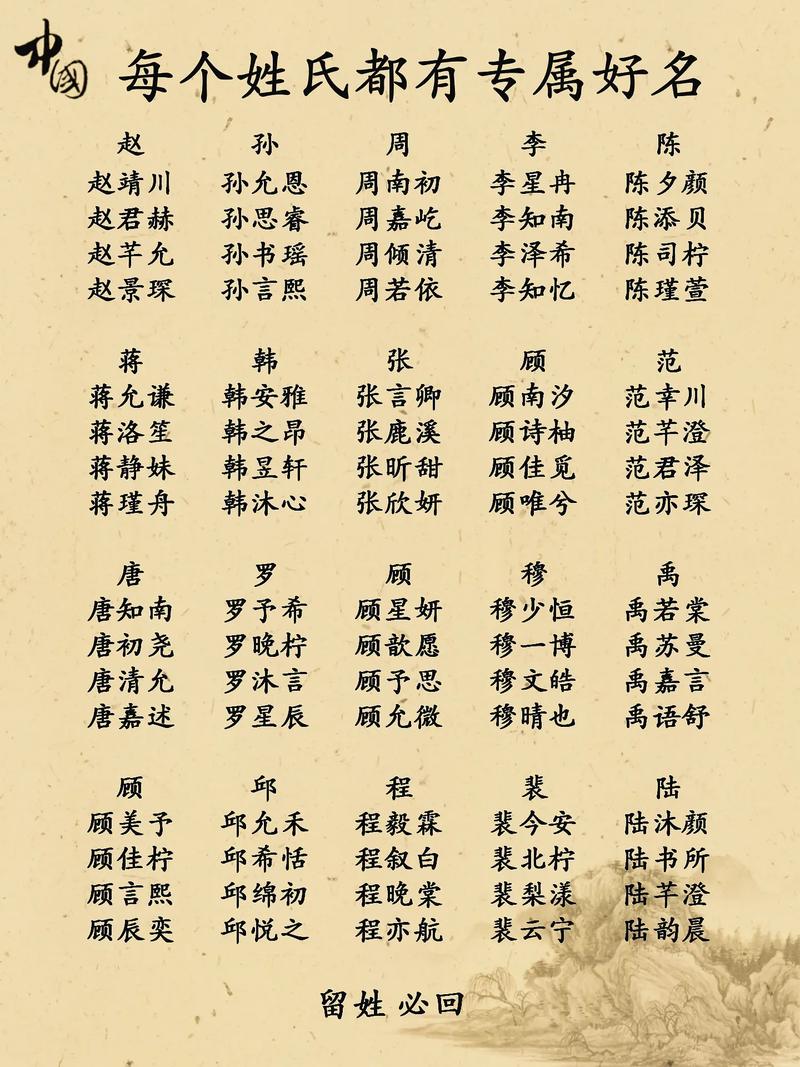 中國
每个姓氏都有专属好名
赵 孙 周 李 陈
赵靖川 孙允恩 周南初 李星冉 陈夕颜
赵君赫 孙思睿 周嘉屹 李知南 陈添贝
赵芊允 孙书瑶 周倾清 李泽希 陈司柠
赵景琛 孙言熙 周若依 李知忆 陈瑾萱
蒋 韩 张 顾 范
蒋允谦 韩安雅 张言卿 顾南汐 范幸川
蒋洛笙 韩之昂 张鹿溪 顾诗柚 范芊澄
蒋静妹 韩昱轩 张昕甜 顾佳觅 范君泽
蒋瑾舟 韩沐心 张欣妍 顾唯兮 范亦琛
唐 罗 顾 穆 禹
唐知南 罗予希 顾星妍 穆少恒 禹若棠
唐初尧 罗晚柠 顾歆愿 穆一博 禹苏曼
唐清允 罗沐言 顾予思 穆文皓 禹嘉言
唐嘉述 罗星辰 顾允微 穆晴也 禹语舒
顾 邱 程 裴 陆
顾美予 邱允禾 程毅霖 裴今安 陆沐颜
顾佳柠 邱希恬 程叙白 裴北柠 陆书所
顾言熙 邱绵初 程晚棠 裴梨漾 陆芊澄
顾辰奕 邱悦之 程亦航 裴云宁 陆韵晨
留姓 必回